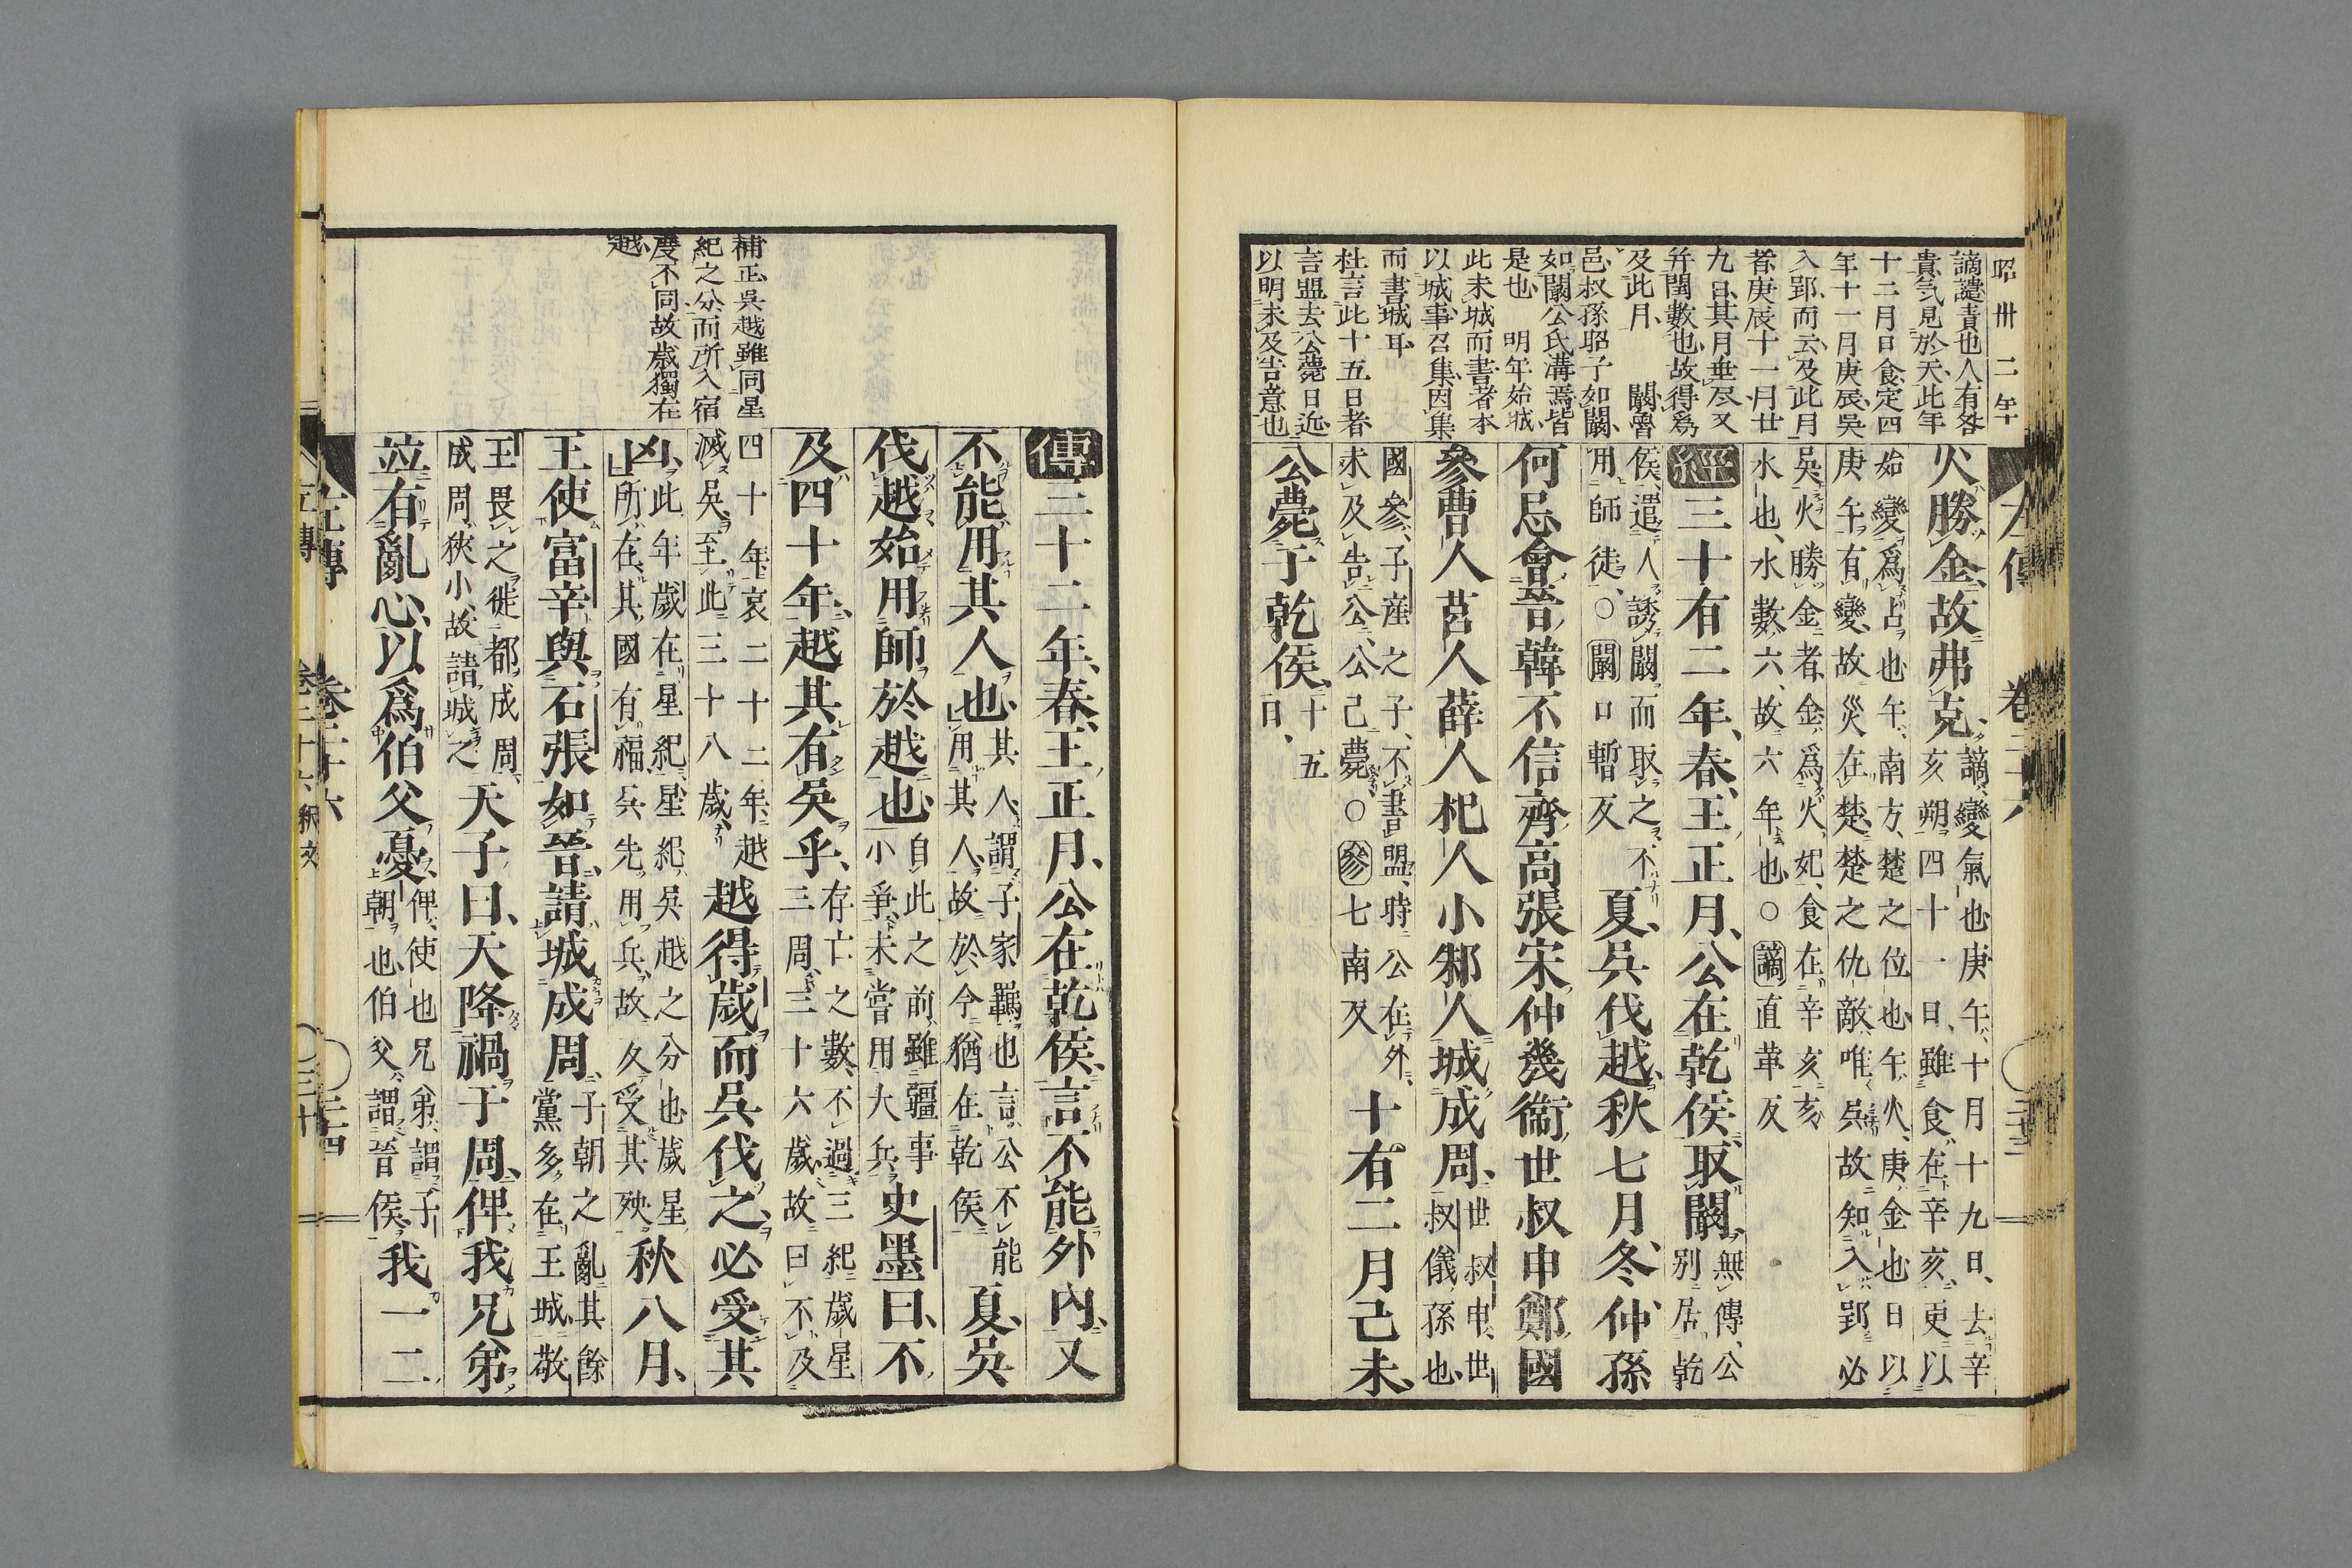 昭卅二年
謫譴責也人有咎
貴氣見於天此年
十二月日食定四
年十一月庚辰吳
入郢而云及此月
者庚辰十一月廿
九日其月垂尽又
幷閏數也故得爲
及此月 闞魯
邑叔孫昭子如闞
如闞公氏溝焉皆
是也 明年始城
此未城而書者本
以城事召集因集
而書城耳
杜言此十五日者
言盟去公薨日近
以明未及告意也
火勝金故弗克、謫、變氣也庚午、十月十九日、去辛
亥朔四十一日、雖食在辛亥、更以
始變爲占也午、南方、楚之位也午、火、庚、金也日以
庚午有變、故災在楚、楚之仇敵、唯吳故知入郢必
吳火勝金者、金爲火妃、食在辛亥亥
水也、水數六、故六年也、○謫直革反
經三十有二年、春、王正月、公在乾侯、取闞、無傳、公
別居乾
侯、遣人誘闞而取之、不
用師徒、○闞口暫反 夏、吳伐越、秋七月、冬、仲孫
何忌會晉韓不信齊高張宋仲幾衞世叔申鄭國
參曹人莒人薛人杞人小邾人城成周、世叔申、世
叔儀孫也、
國參、子產之子、不書盟、時公在外、
未及告公、公已薨、○參七南反 十有二月己未、
公薨于乾侯、十五
日、
左傳 卷二十六
傳三十二年、春、王正月、公在乾侯、言不能外內、又
不能用其人也、其人、謂子家羈也言公不能
用其人、故於今猶在乾侯 夏、吳
伐越、始用師於越也、自此之前、雖疆事
小爭、未嘗用大兵 史墨曰、不
及四十年、越其有吳乎、存亡之數、不過三紀歲星
三周、三十六歲、故曰不及
四十年哀二十二年、越
滅吳、至此三十八歲、 越得歲而吳伐之、必受其
凶、此年歲在星紀、星紀、吳越之分也歲星
所在、其國有福、吳先用兵、故反受其殃 秋八月、
王使富辛與石張如晉、請城成周、子朝之亂其餘
黨多在王城、敬
王畏之徙都成周、
成周狹小、故請城之 天子曰、天降禍于周、俾我兄弟
竝有亂心、以爲伯父憂、俾、使也兄弟、謂子
朝也、伯父、謂晉侯、 我一二
補正吳越雖同星
紀之分而所入宿
度不同故歲獨在
越
左傳 卷二十六 二十四